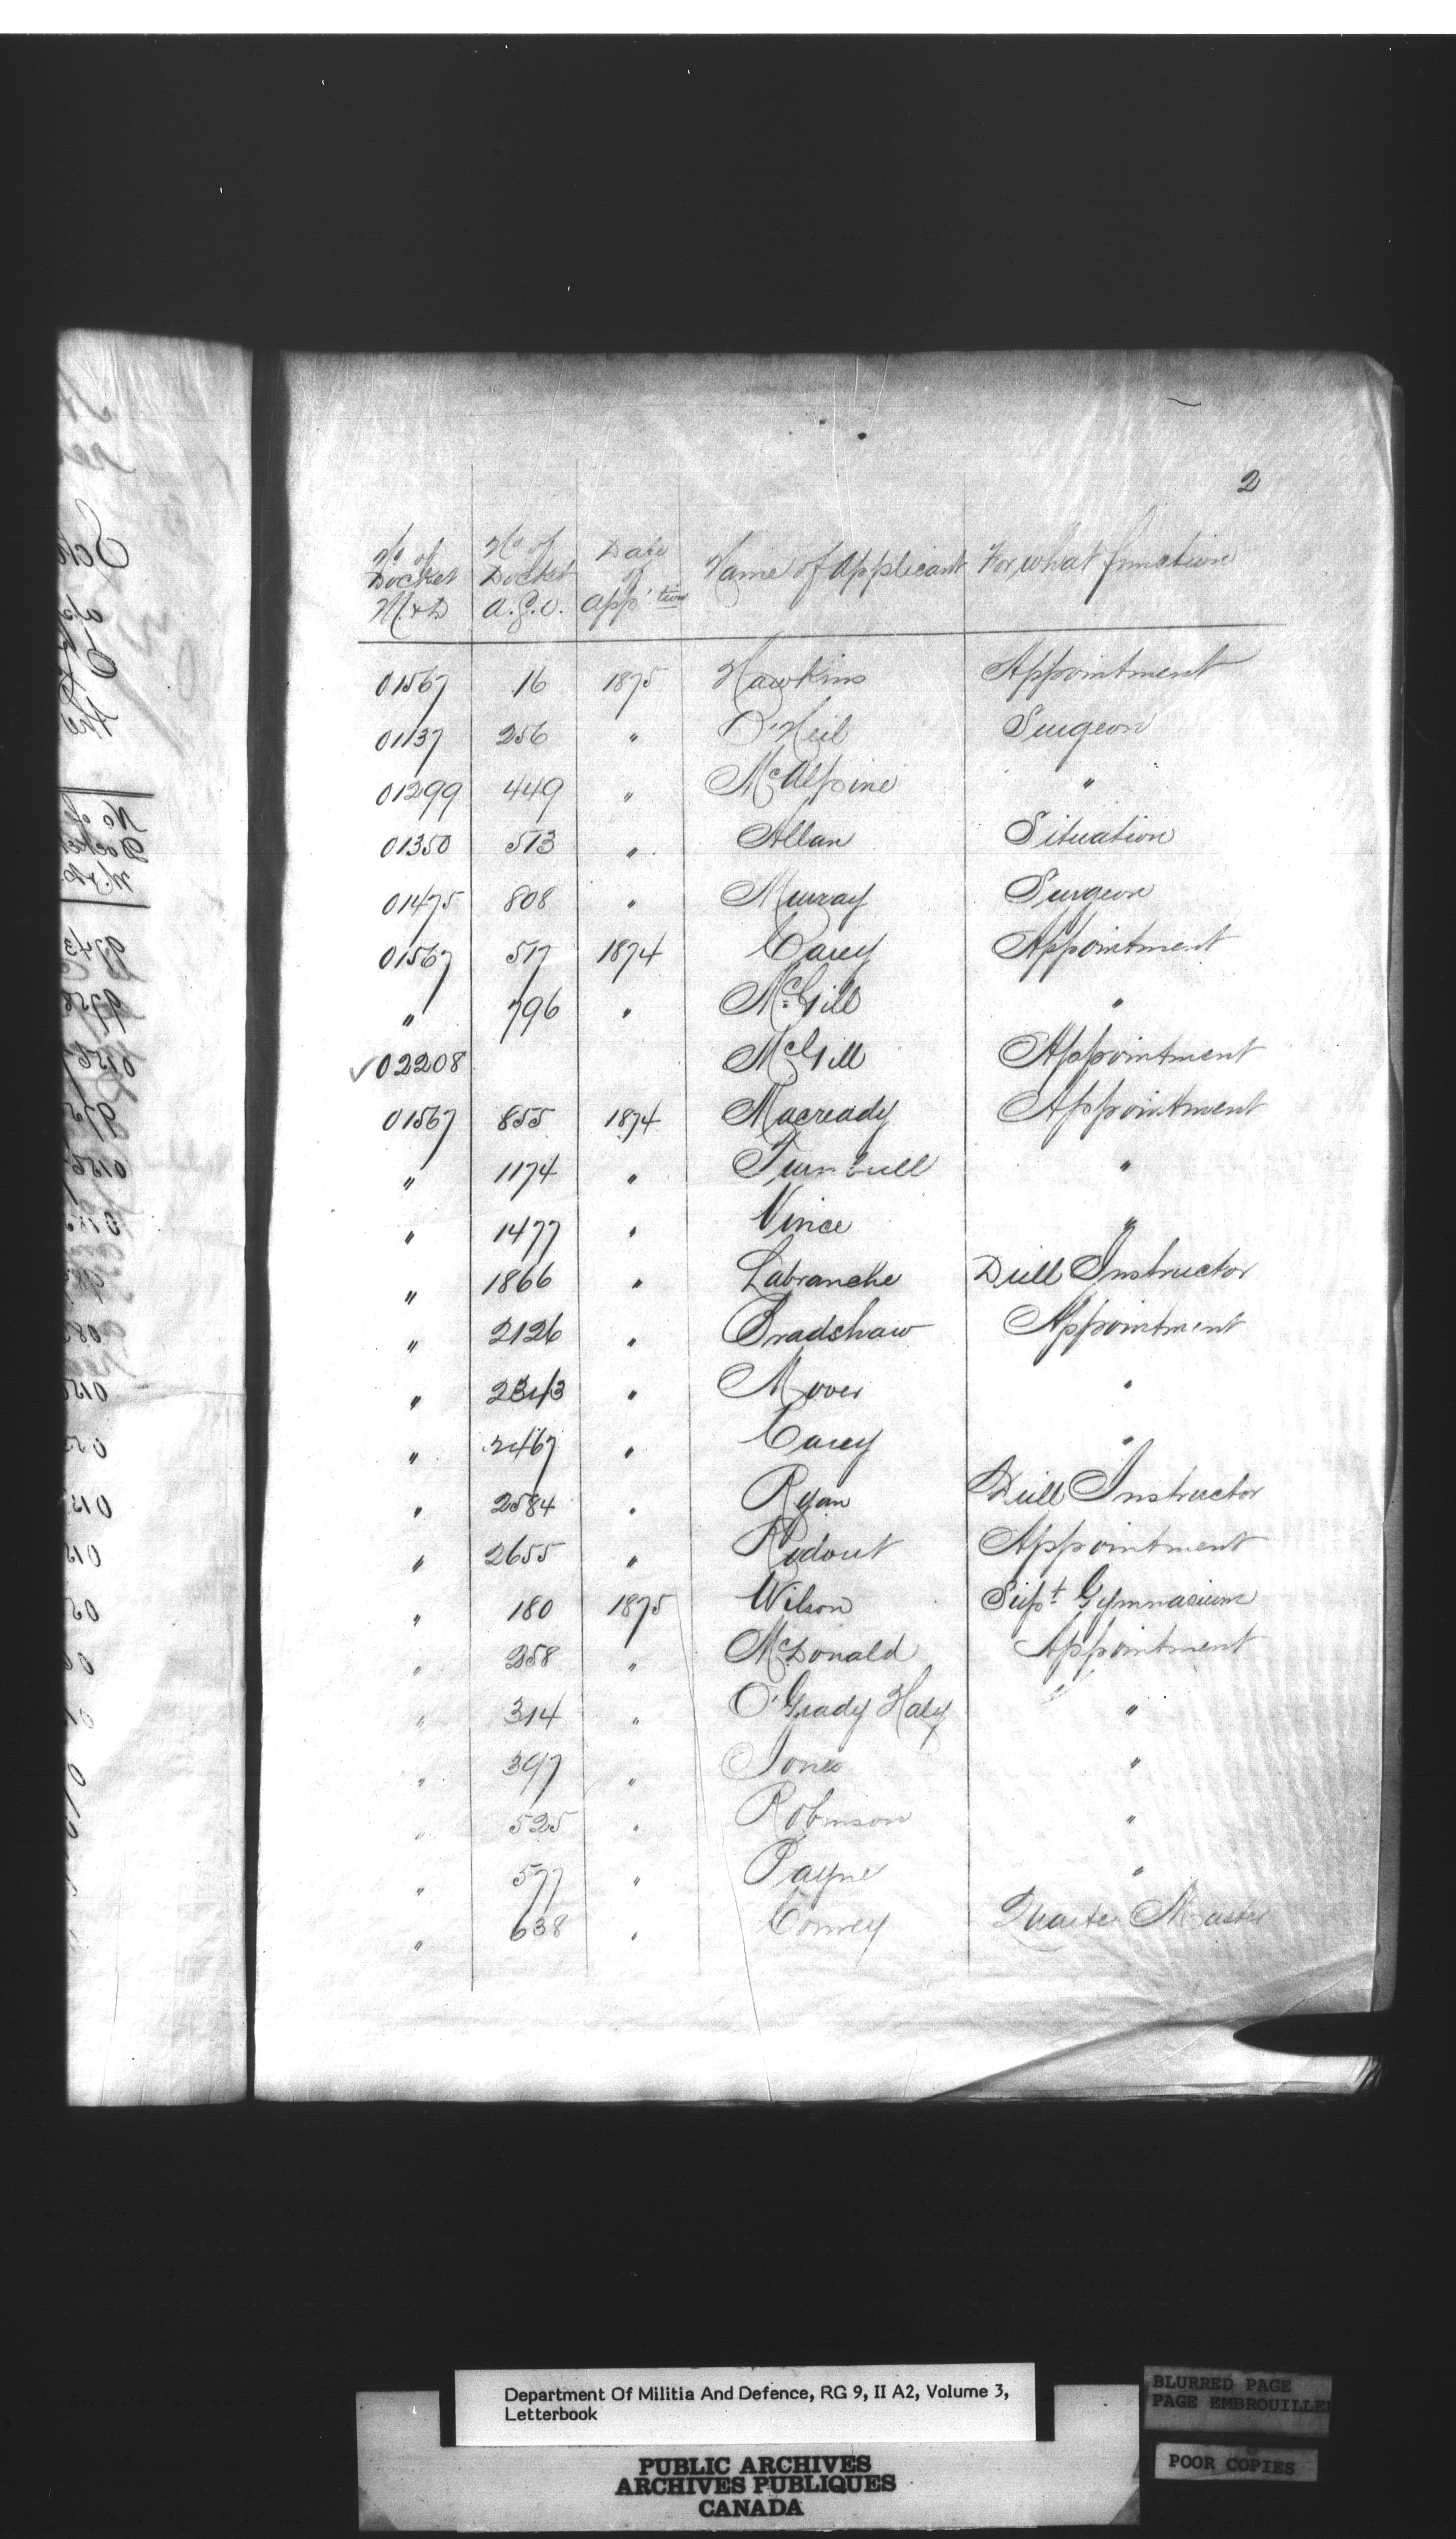 2
No of Docket M&D | No of Docket A.G.O. | Date of app'tion | Name of Applicant | For what function
01567 16 1875 Hawkins Appointment
01137 256 " O'Neil Surgeon
01299 449 " McAlpine "
01350 513 " Allan Situation
01475 808 " Murray Surgeon
01567 517 1874 Carey Appointment
" 796 " McGill "
✓02208 McGill Appointment
01567 855 1874 Macready Appointment
" 1174 " Turnbull "
" 1477 " Vince "
" 1866 " Labranche Drill Instructor
" 2126 " Bradshaw Appointment
" 2343 " "
" 2467 " Carey "
" 2584 " Ryan Drill Instructor
" 2655 " Ridout Appointment
" 180 1875 Wilson Supt Gymnasium
" 258 " McDonald Appointment
" 314 " O'Grady Haly "
" 397 " Jones "
" 525 " Robinson "
" 577 " Payne "
" 638 " Quarter Master
Department Of Militia And Defence, RG 9, II A2, Volume 3,
Letterbook
BLURRED PAGE
PAGE EMBROUILLEE
POOR COPIES
PUBLIC ARCHIVES
ARCHIVES PUBLIQUES
CANADA